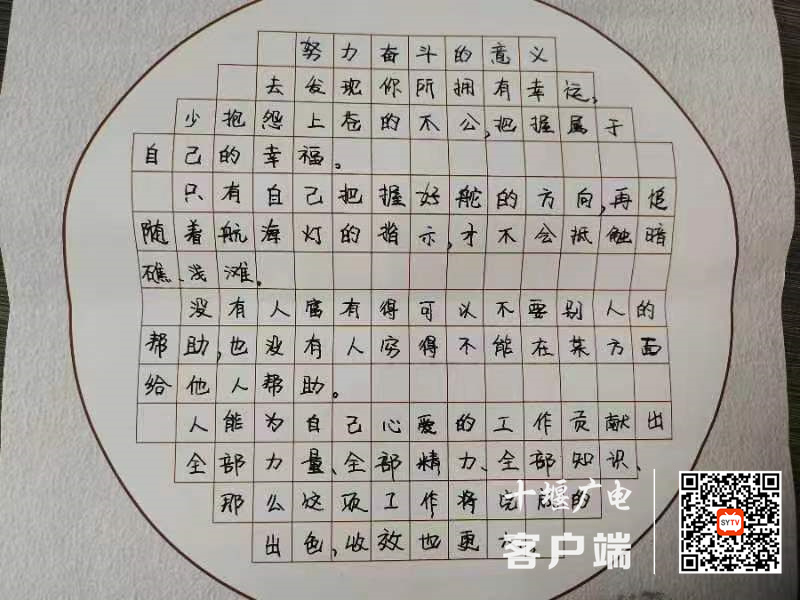 努力奋斗的意义
去发现你所拥有幸运,
少抱怨上苍的不公,把握属于
自己的幸福。
只有自己把握好舵的方向,再追
随着航海灯的指示,才不会抵触暗
礁、浅滩。
没有人富有得可以不要别人的
帮助,也没有人穷得不能在某方面
给他人帮助。
人能为自己心爱的工作贡献出
全部力量、全部精力、全部知识、
那么这项工作将完成的
出色,收效也更
十堰广电
客户端
SYTV